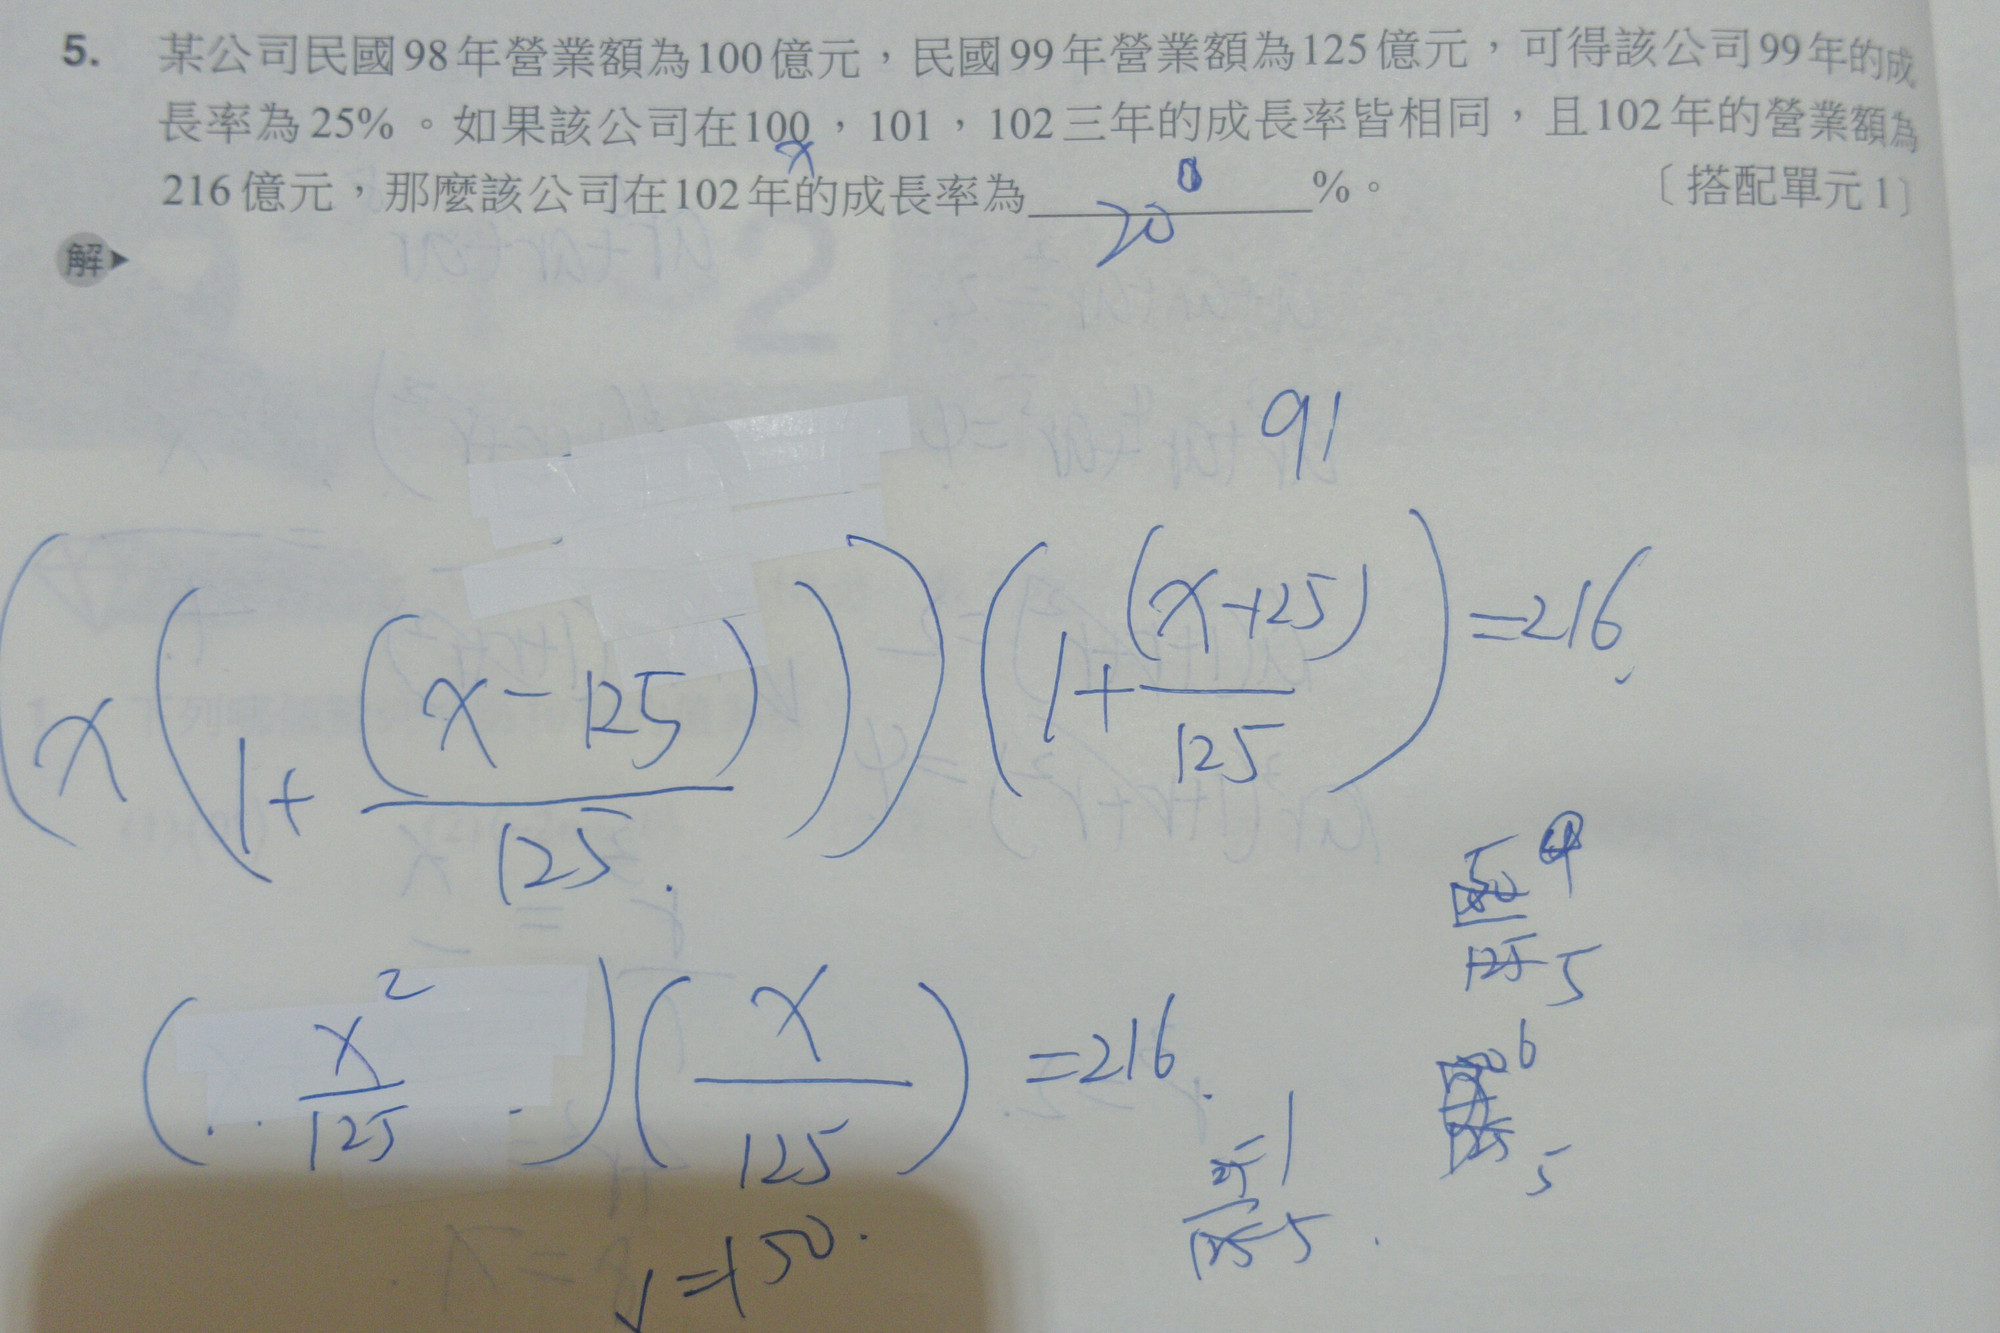 5. 某公司民國98年營業額為100億元，民國99年營業額為125億元，可得該公司99年的成
長率為25%。如果該公司在100，101，102三年的成長率皆相同，且102年的營業額為
x
216億元，那麼該公司在102年的成長率為 20 %。 〔搭配單元1〕
解
91
(x(1+(x-125)/125))(1+(x-125)/125)=216
(x²/125)(x/125)=216
x=150